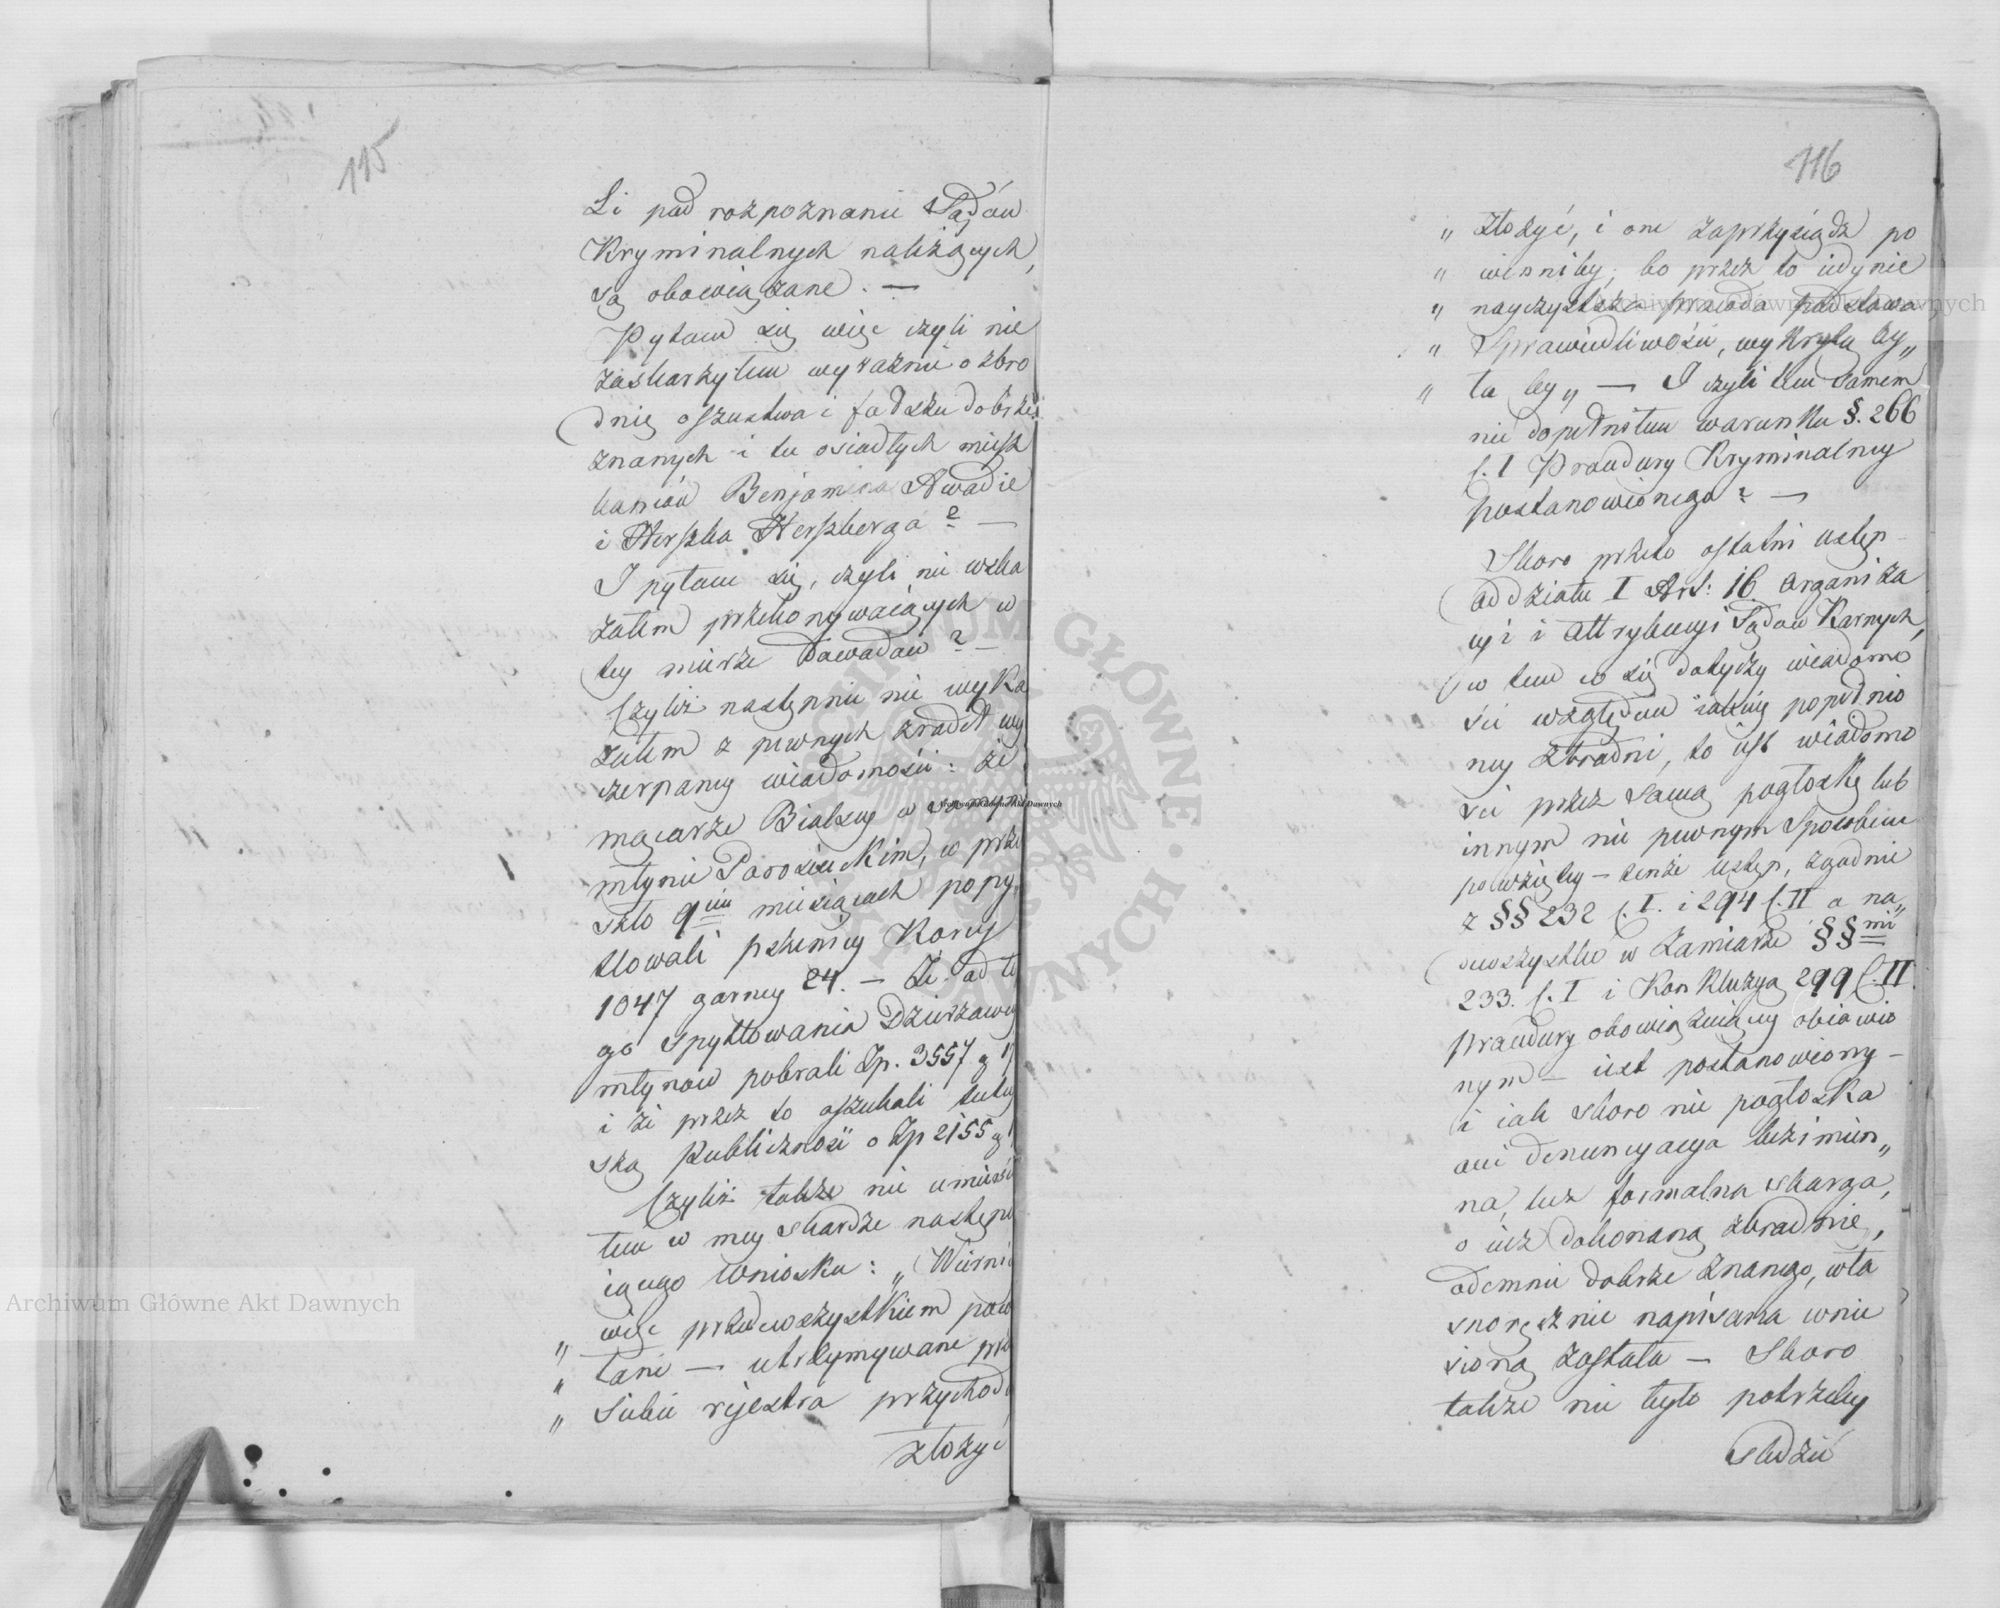 115
Li pod rozpoznanie Sądów
Kryminalnych należących,
są obowiązane. —
Pytam się więc czyli nie
zaskarżyłem wyraźnie o zbro
dnię oszustwa i fałszu dobrze
znanych i tu osiadłych miesz
kańców Benjamina Awadie
i Herszka Herszberga? —
I pytam się, czyli nie wska
załem przekonywaiących w
tey mierze dowodów? —
Czyliż następnie nie wyka
załem z pewnych źródeł wy
czerpaney wiadomości: że
mączarze Bialscy w
młynie Parosieckim, w prze
szło 9ciu miesiącach popy
tlowali pszenicy Korcy
1047 garncy 24. — Że od te
go Spytlowania Dzierzawcy
młynow pobrali Zp. 3557 g
i że przez to oszukali tutey
szą Publiczność o Zp 2155 g
Czyliż także nie umieści
łem w mey skardze następu
iącego wniosku: „ Wierni
„ więc przedewszystkiem powo
„ łani — utrzymywane prze
„ Siebie rejestra przychodu
złożyć
116
„ złożyć, i one zaprzysiądz po
„ winniby; bo przez to iedynie
„ nayczystsza prawda podstawa
„ Sprawiedliwości, wykrytą by„
„ ła by„ — I czyli tem samem
nie dopełniłem warunku §. 266
C. I Procedury Kryminalney
postanowionego? —
Skoro przeto ostatni ustęp
oddziału I Art: 16 organiza
cyi i attrybucyi Sądów Karnych,
w tem co się dotyczy wiadomo
ści względem iakiey popełnio
ney zbrodni, to iest wiadomo
ści przez samą pogłoskę lub
innym nie pewnym Sposobem
powziętey — tenże ustęp, zgodnie
z §§ 232 C. I. i 294 C. II a na„
dewszystko w Zamiarze §§mi
233. C. I i Konkluzyą 299 C. II
procedury obowiązuiącey obiawio
nym — iest postanowiony —
i iak skoro nie pogłoska
ani denuncyacya bezimien„
na, lecz formalna skarga,
o iuż dokonaną zbrodnię,
odemnie dobrze znanego, wła
snoręcznie napisana wnie
sioną została — Skoro
także nie było potrzeby
śledzić
Archiwum Główne Akt Dawnych
Archiwum Główne Akt Dawnych
Archiwum Główne Akt Dawnych
ARCHIWUM GŁÓWNE AKT DAWNYCH